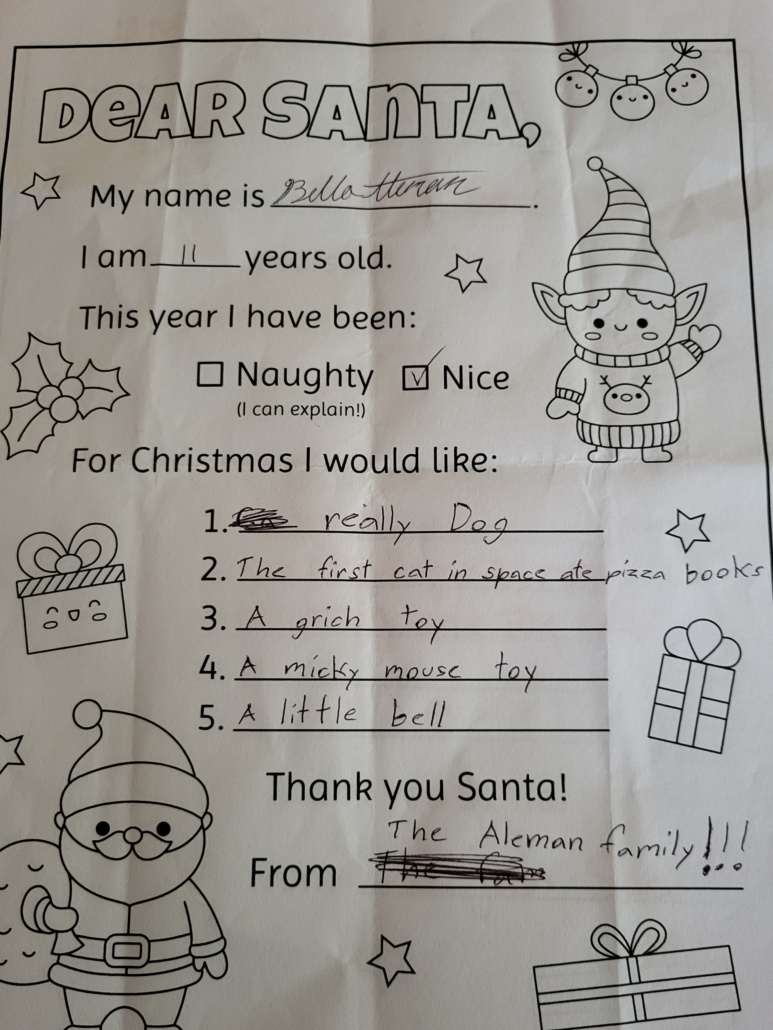 DeAR SAnTA,
My name is Bella
I am 11 years old.
This year I have been:
Naughty Nice
(I can explain!)
For Christmas I would like:
1. really Dog
2. The first cat in space ate pizza books
3. A grich toy
4. A micky mouse toy
5. A little bell
Thank you Santa!
The Aleman family!!!
From